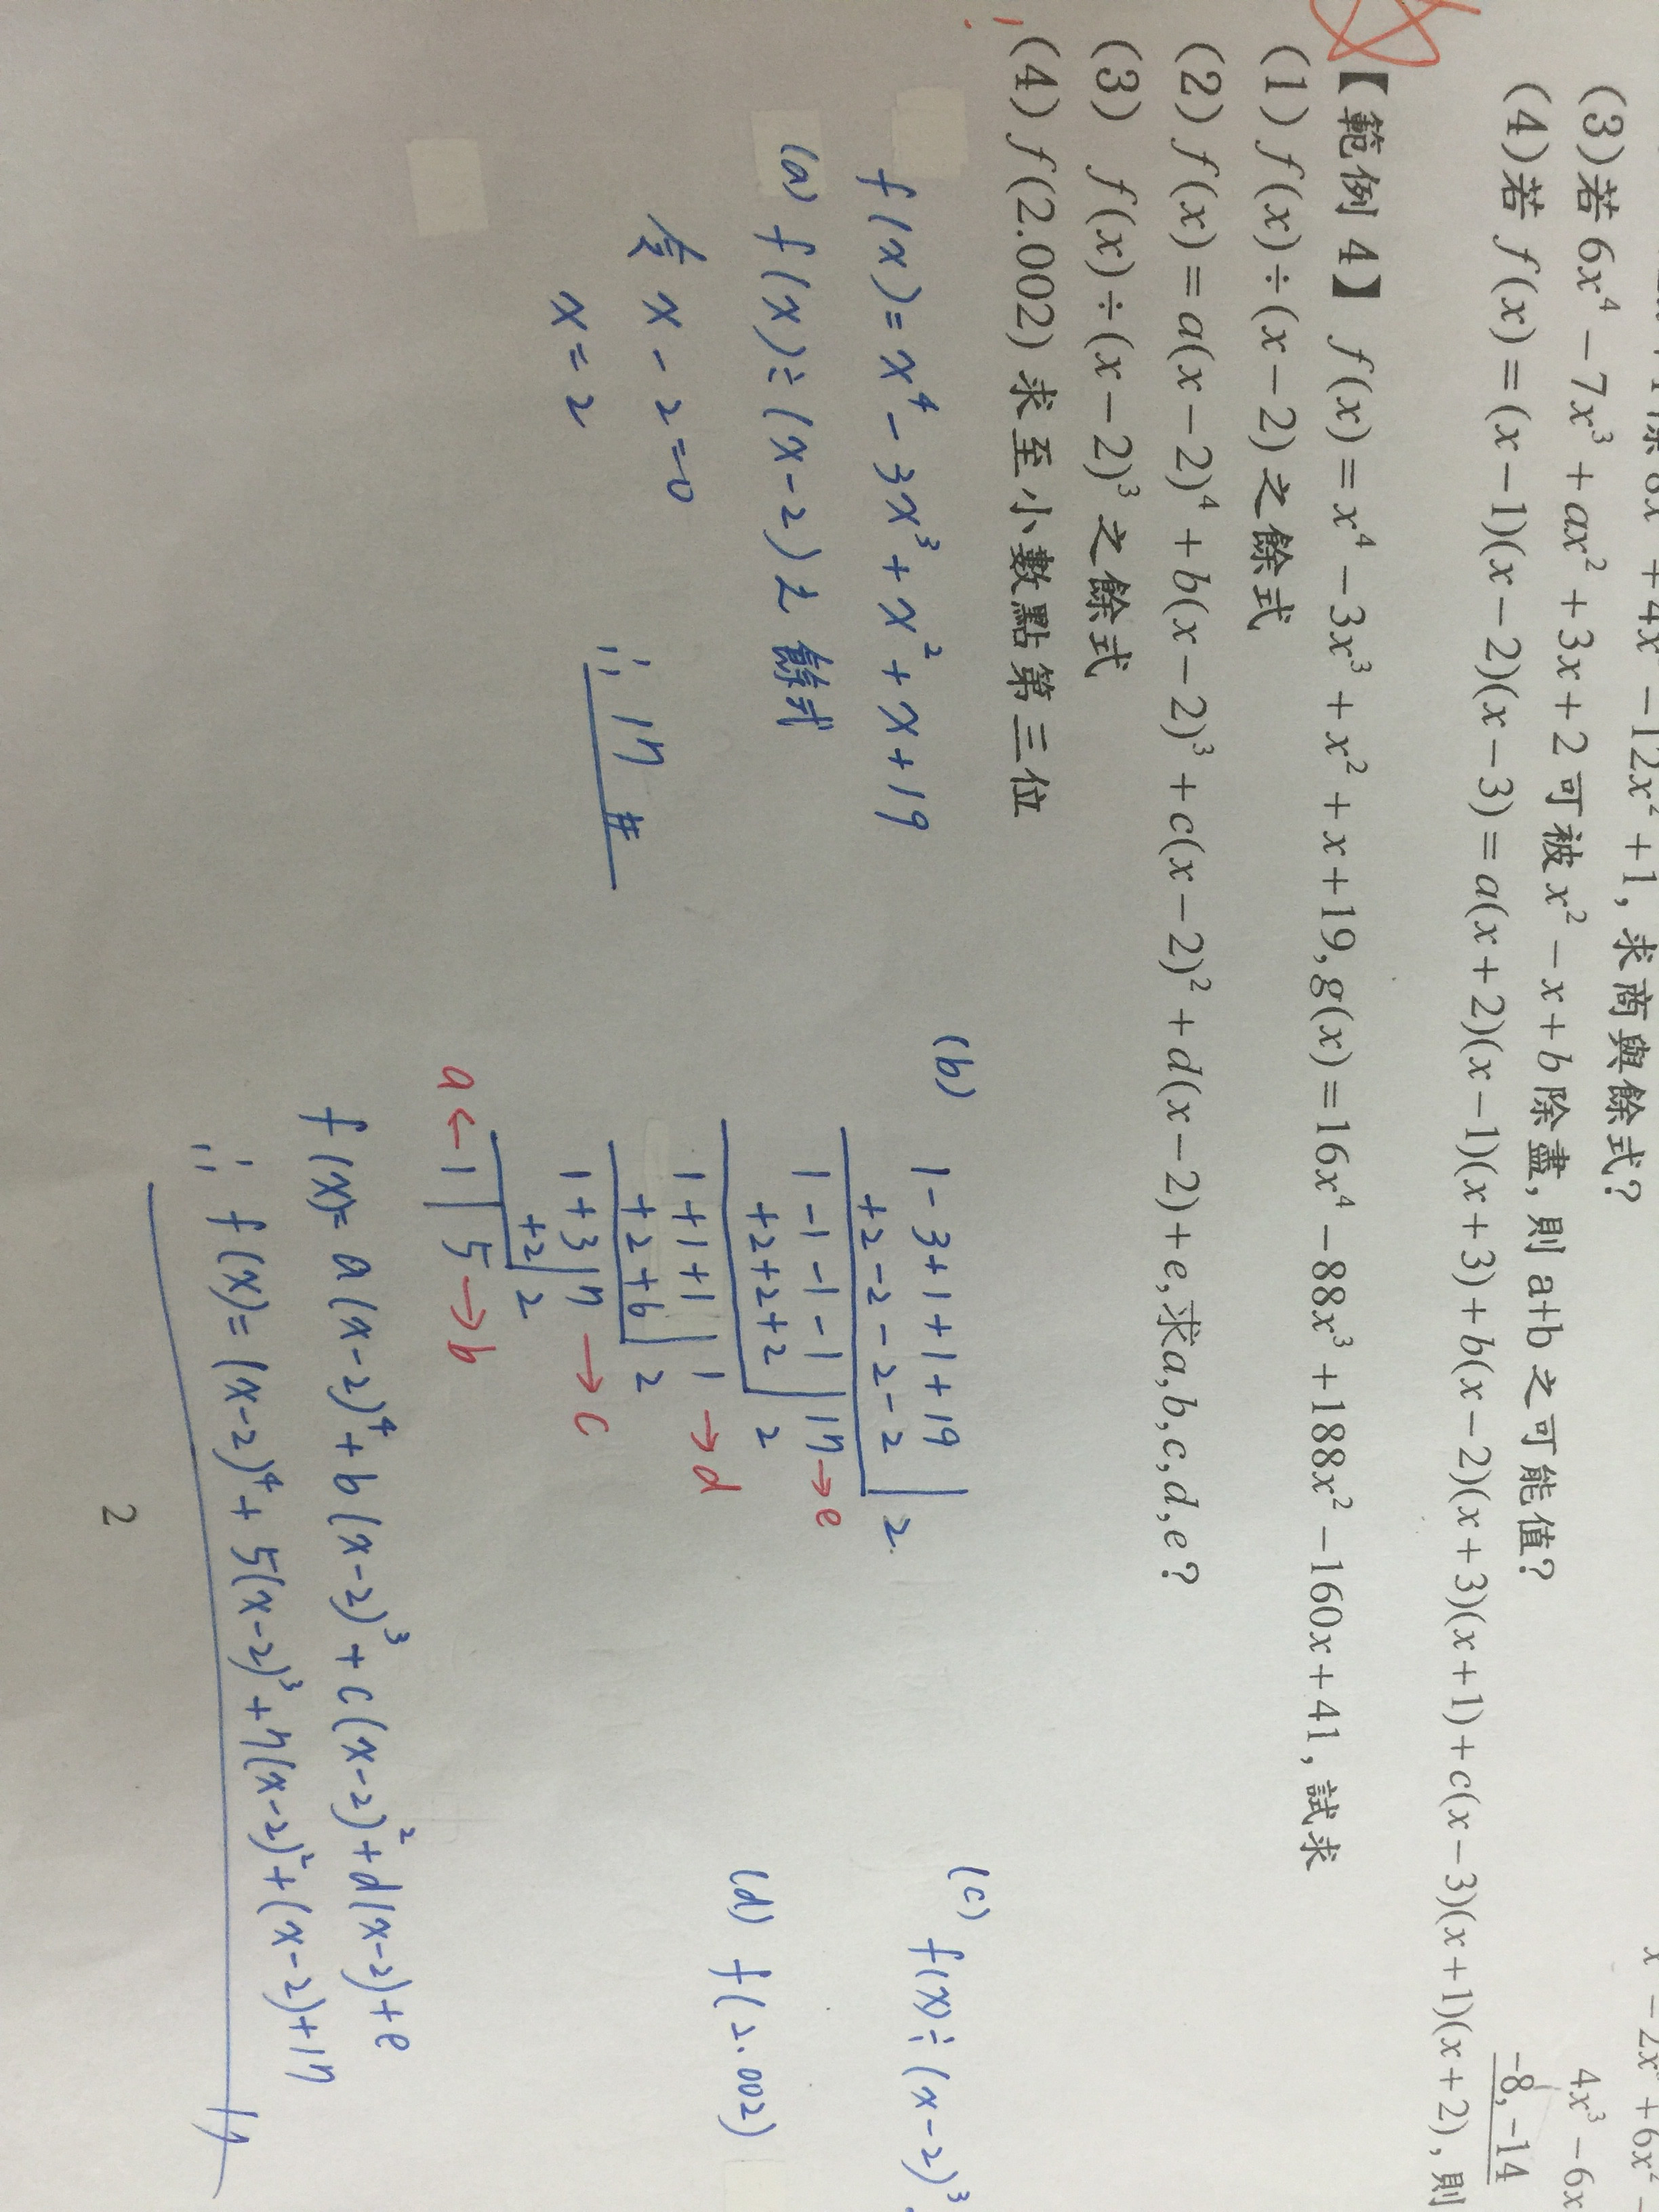 +4x - 12x² + 1, 求商與餘式?
(3)若 6x⁴ - 7x³ + ax² + 3x + 2 可被 x² - x + b 除盡, 則 a+b 之可能值?
4x³ - 6x
-8, -14
(4)若 f(x) = (x-1)(x-2)(x-3) = a(x+2)(x-1)(x+3) + b(x-2)(x+3)(x+1) + c(x-3)(x+1)(x+2), 則
【範例 4】 f(x) = x⁴ - 3x³ + x² + x + 19, g(x) = 16x⁴ - 88x³ + 188x² - 160x + 41, 試求
(1) f(x) ÷ (x-2) 之餘式
(2) f(x) = a(x-2)⁴ + b(x-2)³ + c(x-2)² + d(x-2) + e, 求a,b,c,d,e?
(3) f(x) ÷ (x-2)³ 之餘式
(4) f(2.002) 求至小數點第三位
f(x) = x⁴ - 3x³ + x² + x + 19
(a) f(x) ÷ (x-2) 之餘式
令 x - 2 = 0
x = 2
∴ 17 #
(b)
1 - 3 + 1 + 1 + 19 | 2
+2 - 2 - 2 - 2
1 - 1 - 1 - 1 | 17 → e
+2 + 2 + 2 | 2
1 + 1 + 1 | 1 → d
+2 + 6 | 2
1 + 3 | 7 → c
+2 | 2
a ← 1 | 5 → b
f(x) = a(x-2)⁴ + b(x-2)³ + c(x-2)² + d(x-2) + e
∴ f(x) = (x-2)⁴ + 5(x-2)³ + 7(x-2)² + (x-2) + 17
(c) f(x) ÷ (x-2)³
(d) f(2.002)
2